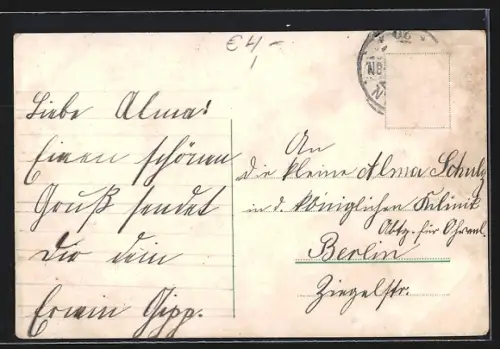 €4,-
Liebe Alma!
Einen schönen
Gruß sendet
Dir dein
Erwin Gipp.
An
die kleine Alma Schulz
in d. königlichen Klinik
Abtg. für Ohrenl.
Berlin
Ziegelstr.